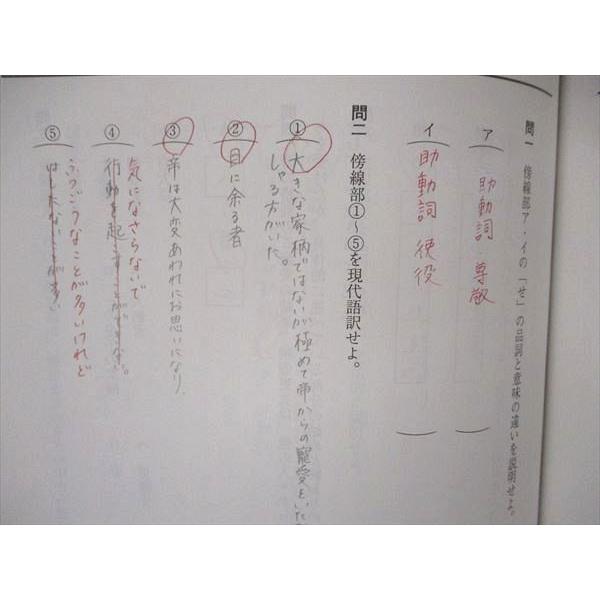 問一 傍線部ア・イの「せ」の品詞と意味の違いを説明せよ。
ア 助動詞 尊敬
イ 助動詞 使役
問二 傍線部①〜⑤を現代語訳せよ。
① 大きな家柄ではないが極めて帝からの寵愛をいた
しゃる方がいた。
② 目に余る者
③ 帝は大変あわれにお思いになり、
気になさらないで
④ 行動を起こすことができない。
⑤ はしたないことが多い
ふつごうなことが多いけれど